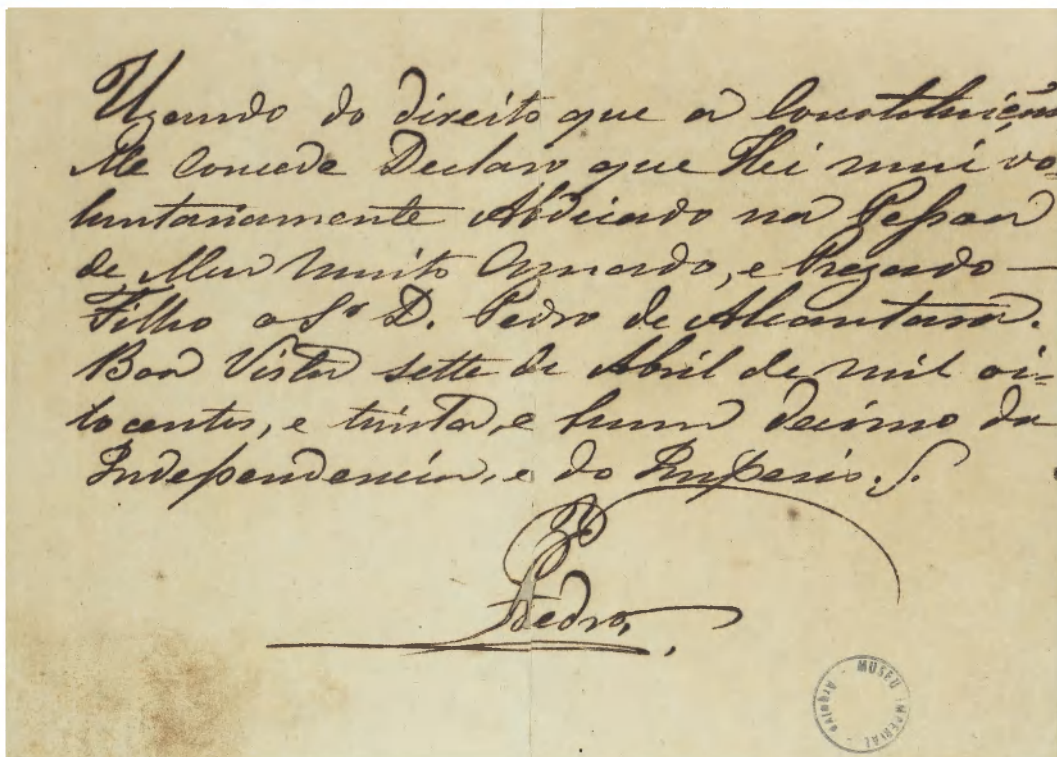 Uzando do direito que a Constituição
Me concede Declaro que Hei mui vo=
luntariamente Abdicado na Pessoa
de Meu muito Amado, e Prezado —
Filho o Sr. D. Pedro de Alcantara.
Boa Vista sette de Abril de mil oi=
tocentos, e trinta, e hum decimo da
Independencia, e do Imperio.
Pedro,
MUSEU IMPERIAL - Arquivo -